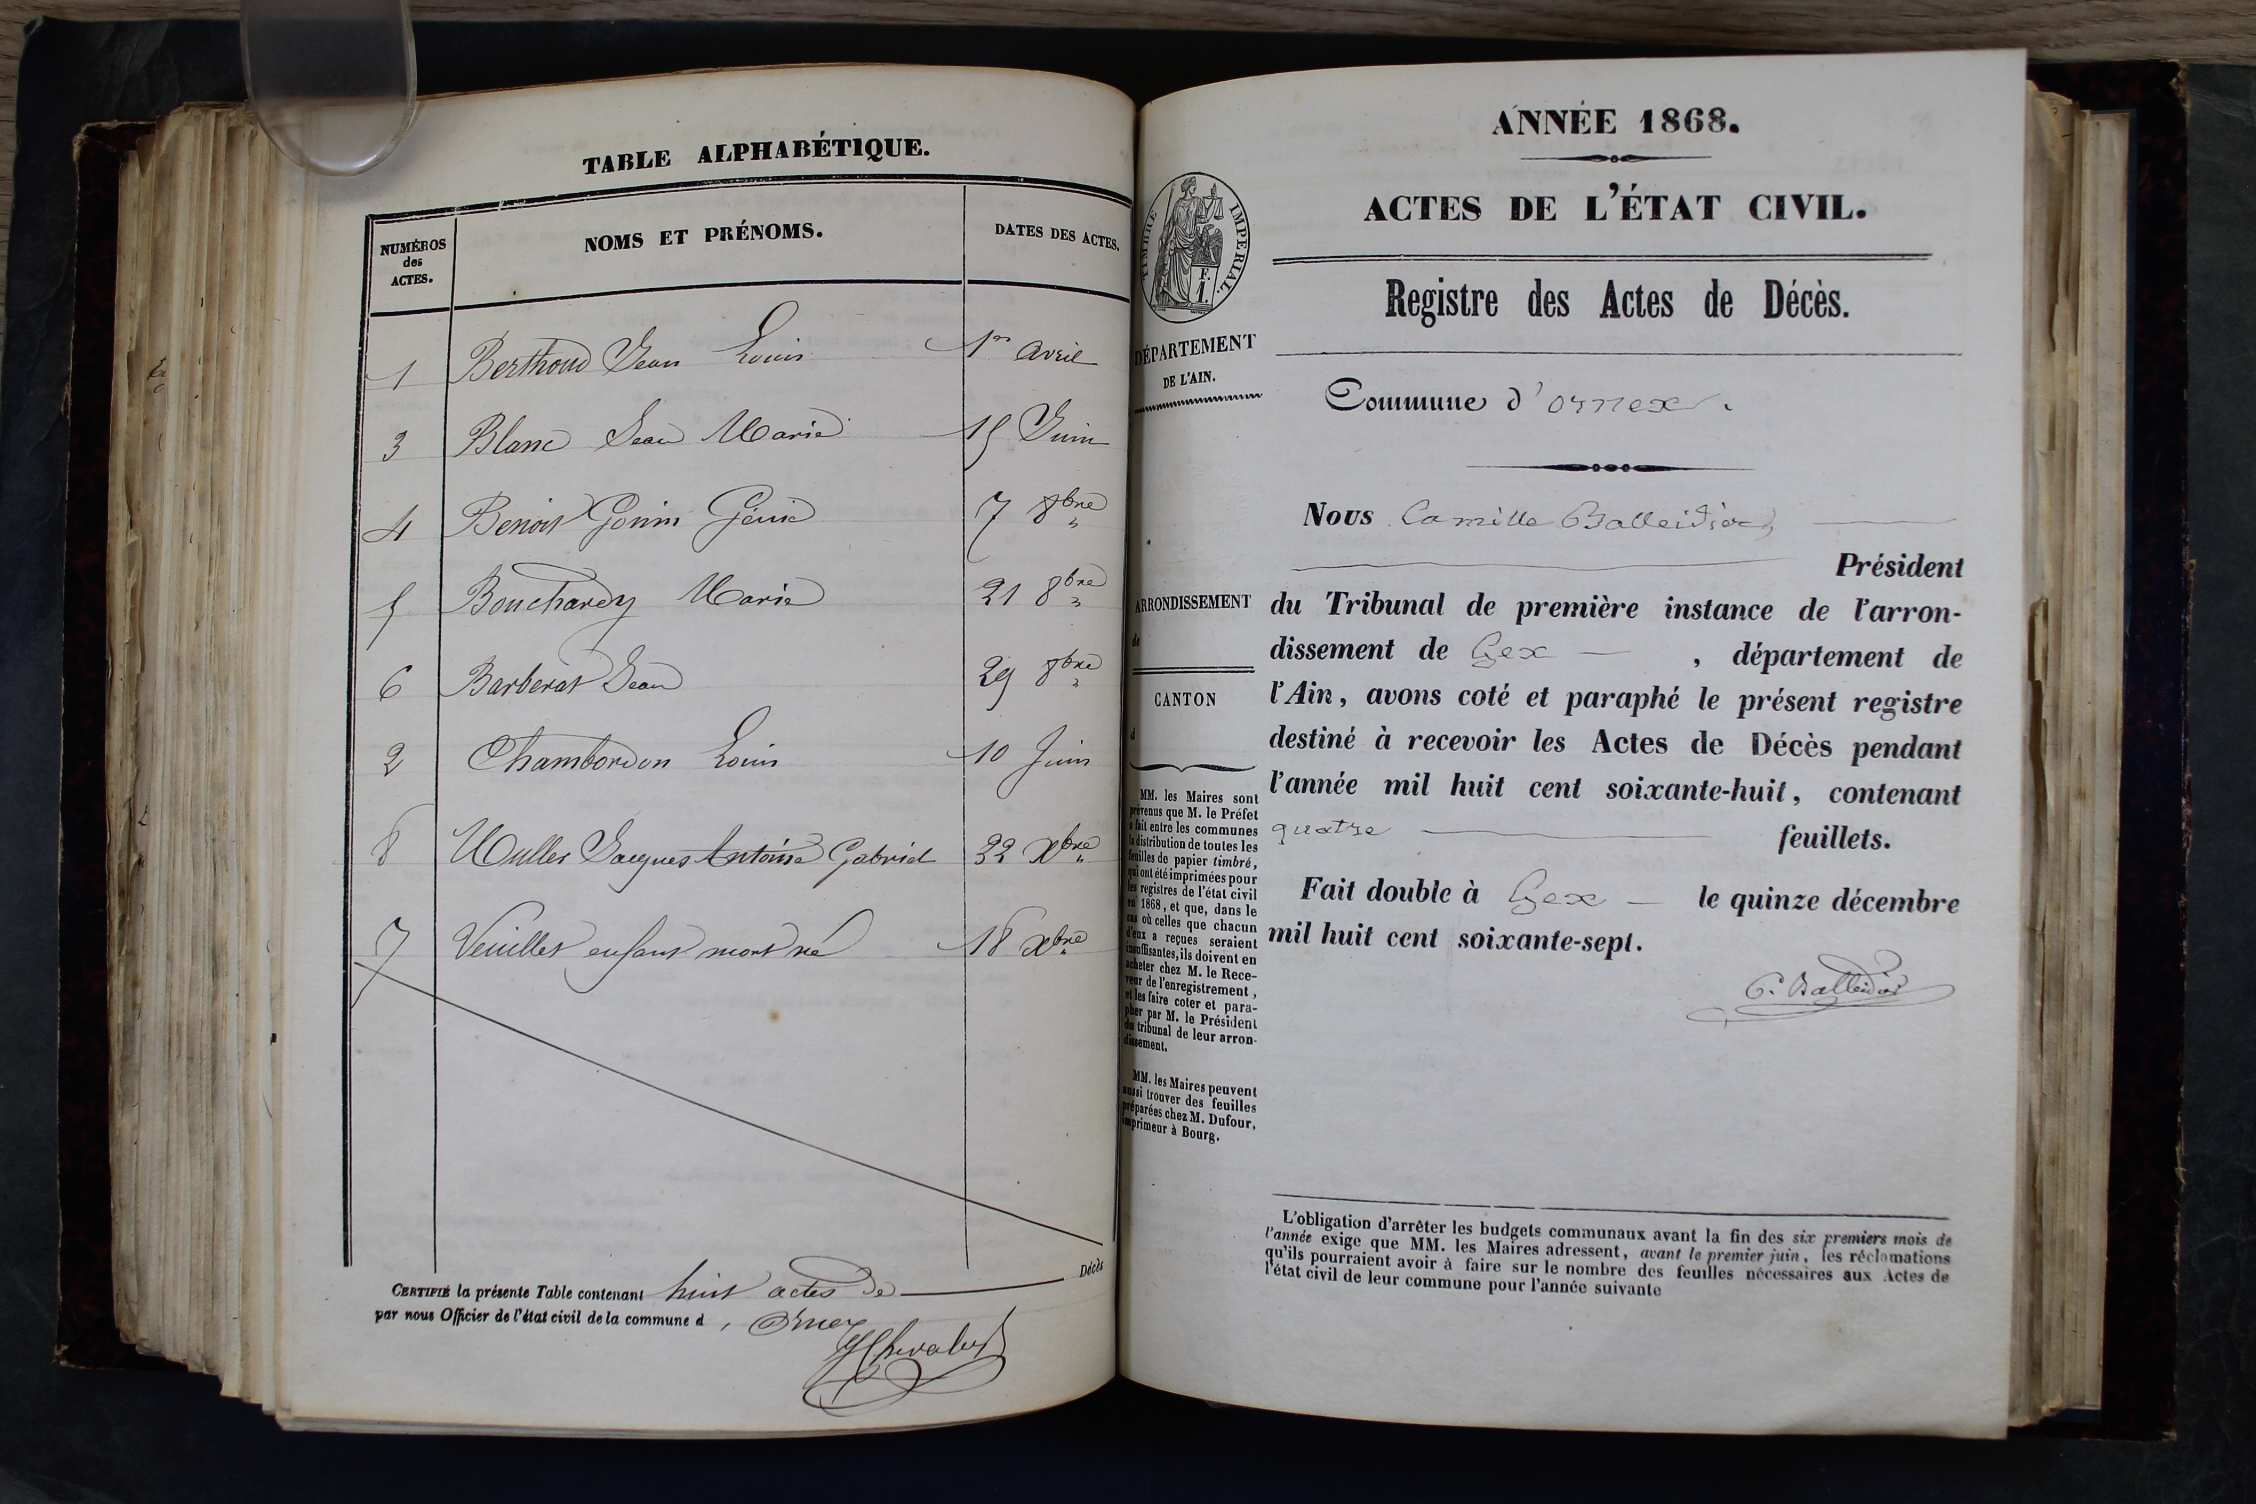 TABLE ALPHABÉTIQUE.
NUMÉROS des ACTES. NOMS ET PRÉNOMS. DATES DES ACTES.
1 Berthoud Jean Louis 1er avril
3 Blanc Jean Marie 15 Juin
4 Benoit Gonin Génie 7 8bre
5 Bouchardy Marie 21 8bre
6 Barberat Jean 29 8bre
2 Chambordon Louis 10 Juin
8 Muller Jacques Antoine Gabriel 22 Xbre
7 Veuillet enfant mort né 18 Xbre
Décès
CERTIFIÉ la présente Table contenant huit actes de
par nous Officier de l'état civil de la commune d'Ornex
ANNÉE 1868.
ACTES DE L'ÉTAT CIVIL.
Registre des Actes de Décès.
TIMBRE IMPÉRIAL.
F.
1.
DÉPARTEMENT
DE L'AIN.
ARRONDISSEMENT
de
CANTON
d
MM. les Maires sont
prévenus que M. le Préfet
a fait entre les communes
la distribution de toutes les
feuilles de papier timbré,
qui ont été imprimées pour
les registres de l'état civil
en 1868, et que, dans le
cas où celles que chacun
d'eux a reçues seraient
insuffisantes, ils doivent en
acheter chez M. le Rece-
veur de l'enregistrement,
et les faire coter et para-
pher par M. le Président
du tribunal de leur arron-
dissement.
MM. les Maires peuvent
aussi trouver des feuilles
préparées chez M. Dufour,
imprimeur à Bourg.
Commune d'ornex.
Nous Camille Balleidier,
Président
du Tribunal de première instance de l'arron-
dissement de Gex, département de
l'Ain, avons coté et paraphé le présent registre
destiné à recevoir les Actes de Décès pendant
l'année mil huit cent soixante-huit, contenant
quatre feuillets.
Fait double à Gex le quinze décembre
mil huit cent soixante-sept.
C. Balleidier
L'obligation d'arrêter les budgets communaux avant la fin des six premiers mois de
l'année exige que MM. les Maires adressent, avant le premier juin, les réclamations
qu'ils pourraient avoir à faire sur le nombre des feuilles nécessaires aux Actes de
l'état civil de leur commune pour l'année suivante